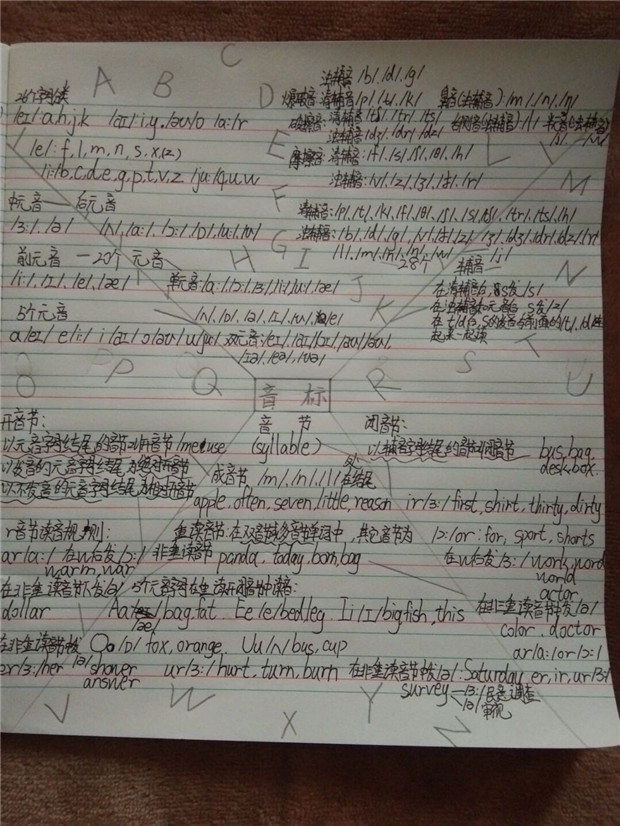 C
A B D
浊辅音 /b/ /d/ /g/
26个字母
爆破音: 清辅音 /p/ /t/ /k/ 鼻音(浊辅音): /m/ /n/ /ŋ/
/eɪ/ a.h.j.k /aɪ/ i.y. /əʊ/ o /a:/ r
清辅音 /tʃ/ /tr/ /ts/
浊辅音 /dʒ/ /dr/ /dz/
E
/e/: f, l, m, n, s, x, (z)
摩擦音: 清辅音: /f/ /s/ /ʃ/ /θ/ /h/
L
/i:/ b,c,d,e,g,p,t,v,z /ju:/ q,u,w
浊辅音: /v/ /z/ /ʒ/ /ð/ /r/
M
中元音 后元音
F
清辅音: /p/ /t/ /k/ /f/ /θ/ /ʃ/ /s/ /tʃ/ /tr/ /ts/ /h/
/ɜ:/ /ə/ /ʌ/ /a:/ /ɔ:/ /ɒ/ /u:/ /ʊ/
浊辅音: /b/ /d/ /g/ /v/ /ð/ /z/ /ʒ/ /dʒ/ /dr/ /dz/ /r/
G
/l/ /m/ /n/ /ŋ/ /w/ /j/
28个 辅音
前元音 —20个 元音
H I N
/i:/ /ɪ/ /e/ /æ/
单元音: /a:/ /ɔ:/ /ɜ:/ /i:/ /u:/ /æ/
在清辅音后, s发/s/
J
5个元音
/ʌ/ /ɒ/ /ə/ /ɪ/ /ʊ/ /e/
K
在浊辅音和元音后 s发/z/
a /eɪ/ e /i:/ i /aɪ/ o /əʊ/ u /ju:/ 双元音: /eɪ/ /aɪ/ /ɔɪ/ /aʊ/ /əʊ/
/ɪə/ /eə/ /ʊə/
起来一起读
P Q R S T U
音标
开音节: 音节 闭音节:
以元音字母结尾的音节叫开音节 /me use (syllable) 以辅音字母结尾的音节叫闭音节 bus, bag
desk, box
以发音的元音字母结尾为绝对开音节
成音节 /m/ /n/ /l/ 在结尾处
以不发音的元音字母结尾为相对开音节
apple, often, seven, little, reason ir /ɜ:/ first, shirt, thirty, dirty
r音节读音规则: 重读音节: 在双音节或多音节单词中, 其它音节为 /ɔ:/ or: for, sport, shorts
ar /a:/ 在w后发 /ɔ:/ 非重读音节 panda, today, bombag 在w后发 /ɜ:/ work, word
warm, war world
actor
在非重读音节下发 /ə/ 5个元音字母在重读开闭音节中读音:
dollar Aa /æ/ bag, fat. Ee /e/ bed, leg. Ii /ɪ/ big, fish, this 在非重读音节中发 /ə/
color, doctor
在非重读音节中发 Oo /ɒ/ fox, orange. Uu /ʌ/ bus, cup ar /a:/ or /ɔ:/
er /ɜ:/ her /ə/ shower ur /ɜ:/ hurt, turn, burn 在非重读音节中发 /ə/: Saturday er, ir, ur /ɜ:/
answer survey /ɜ:/ 民意调查
/ə/ 审视
V W X Y Z